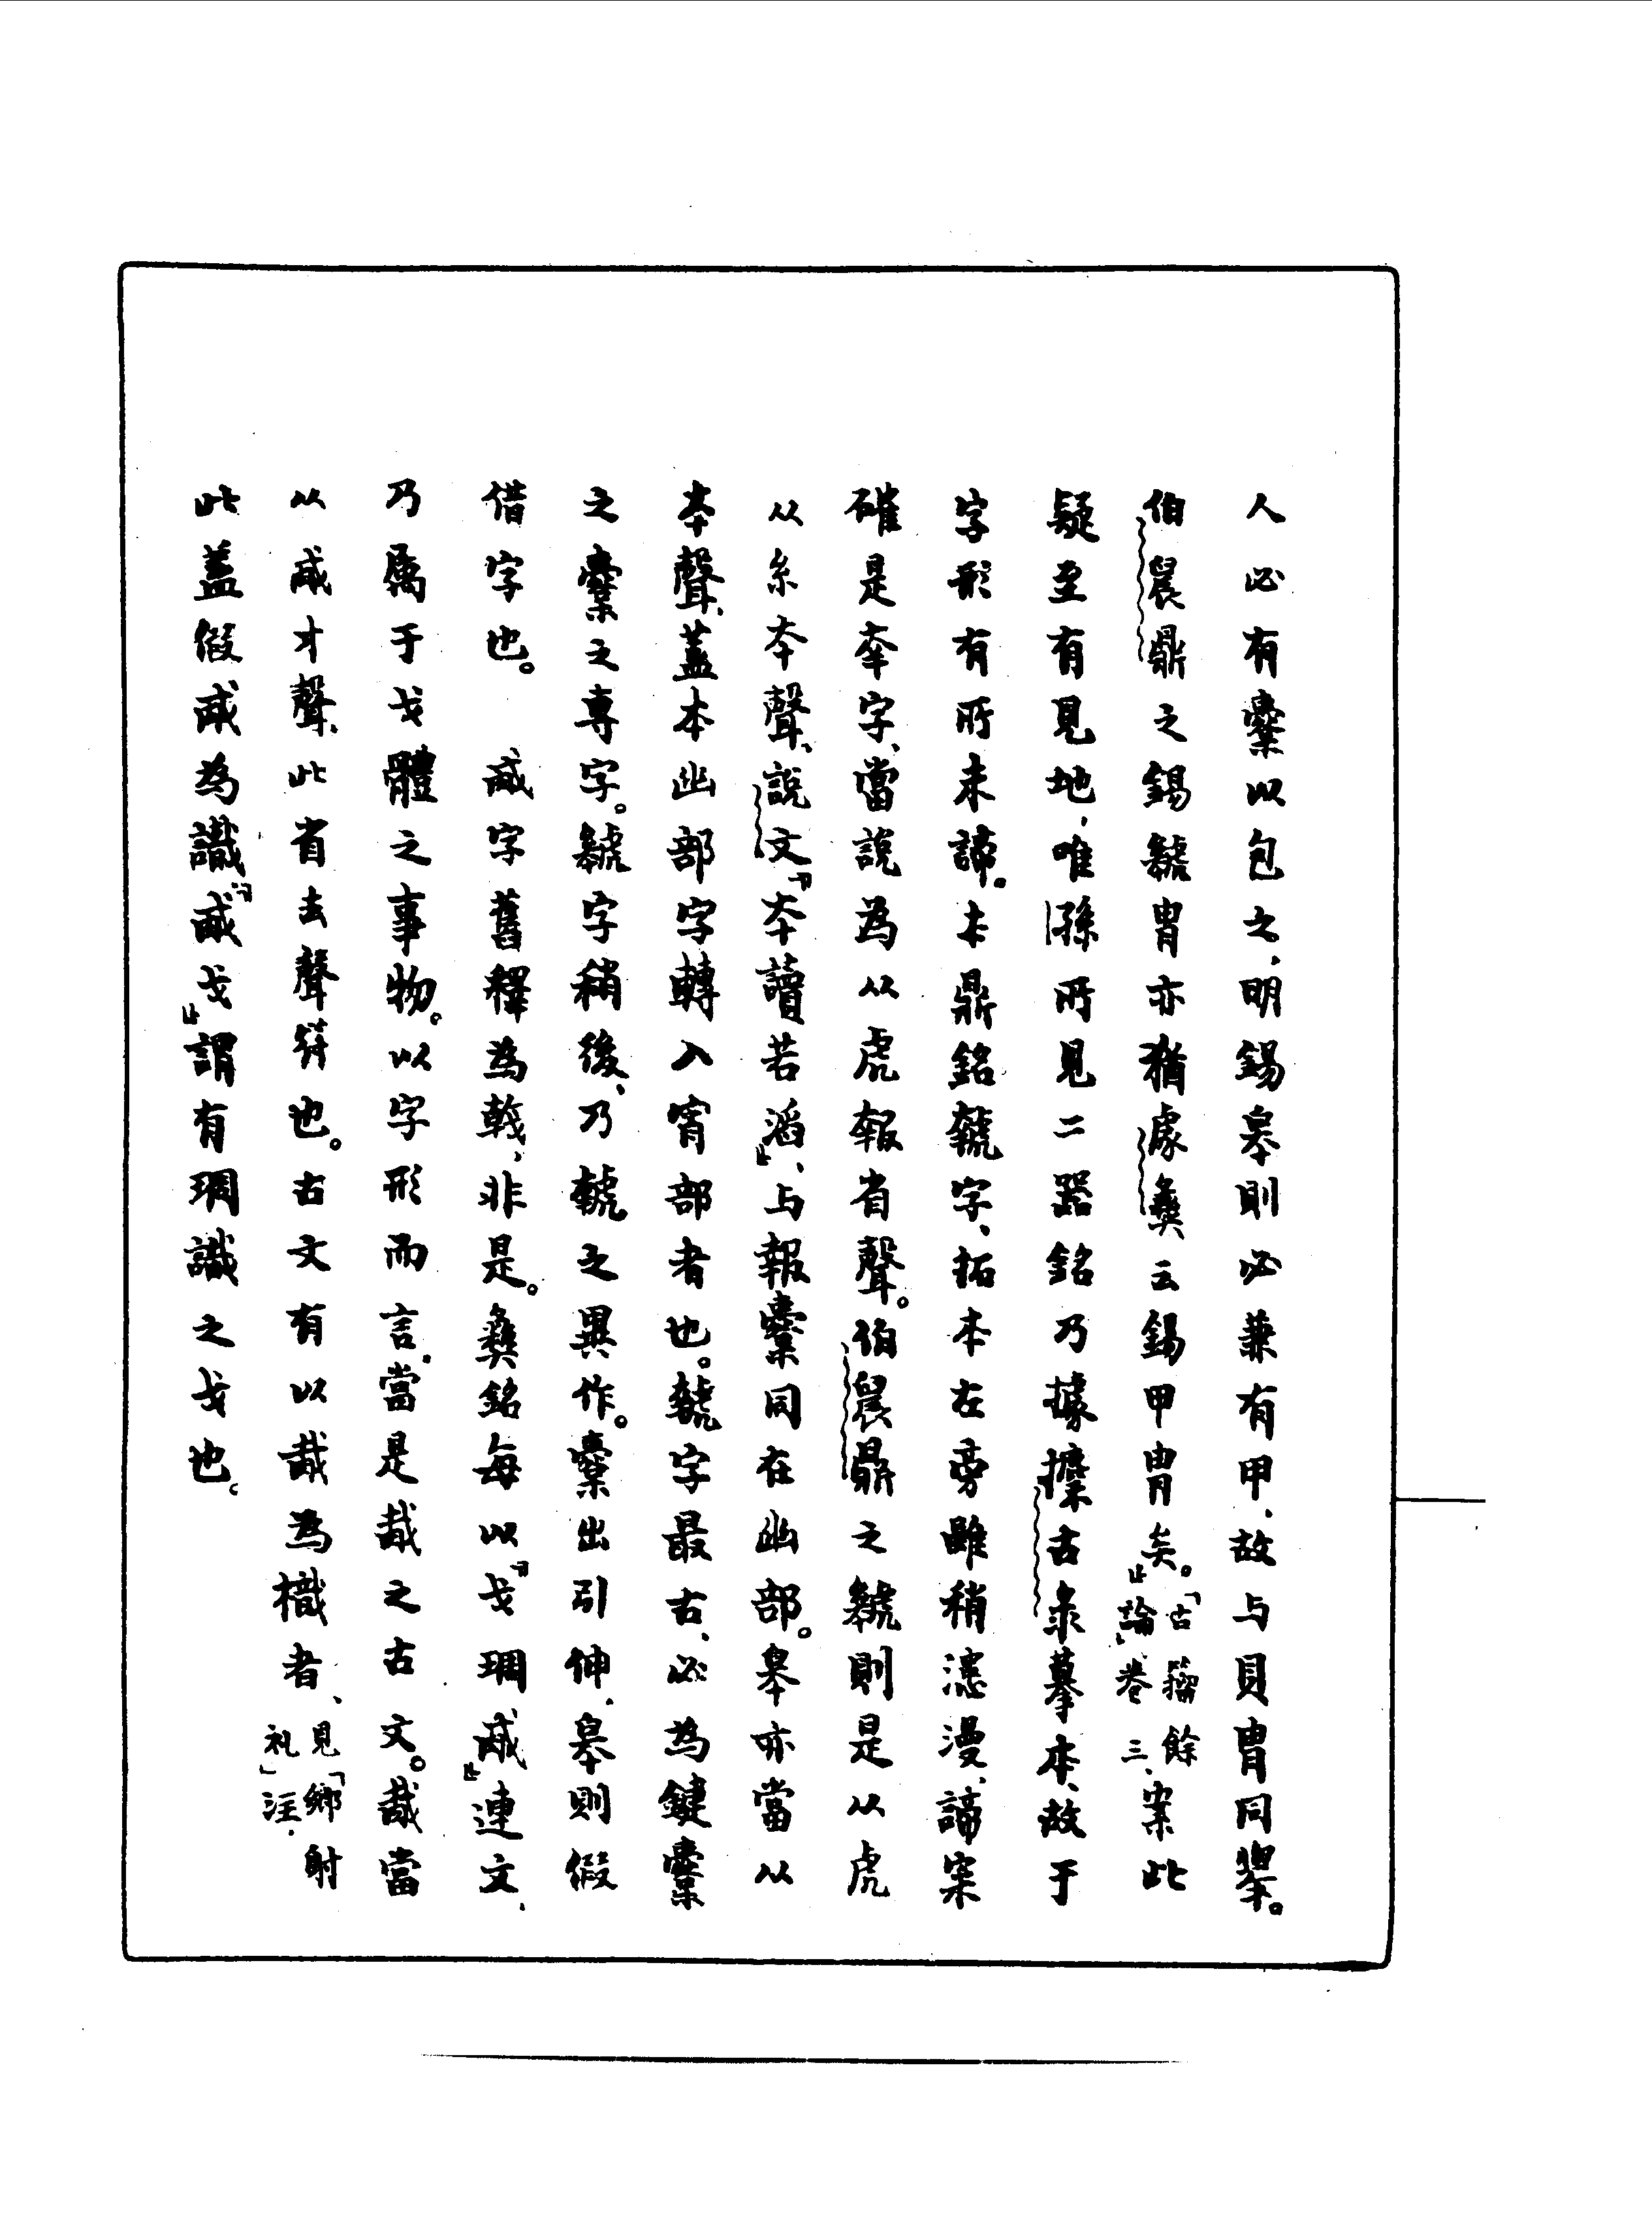 人必有櫜以包之、明錫皋則必兼有甲、故与貝冑同舉。
伯晨鼎之錫䝞冑亦猶䝞彝云錫甲冑矣。』「古籀餘論」卷三、案此
疑至有見地、唯孫所見二器銘乃據攈古彔摹本、故于
字形有所未諦。本鼎銘字、拓本左旁雖稍漶漫、諦案
確是㚔字、當說為从虎報省聲。伯晨鼎之則是从虎
从糸夲聲、說文『夲讀若滔』、与報櫜同在幽部。皋亦當从
夲聲、蓋本幽部字轉入宵部者也。字最古、必為鍵櫜
之櫜之專字。字稍後、乃之異作。櫜出引伸、皋則假
借字也。 胾字舊釋為戟、非是。彝銘每以『戈琱』連文、
乃屬于戈體之事物。以字形而言、當是胾之古文。胾當
从才聲、此省去聲符也。古文有以胾為樴者、見「鄉射礼」注、
此蓋假為識、『戈』謂有琱識之戈也。